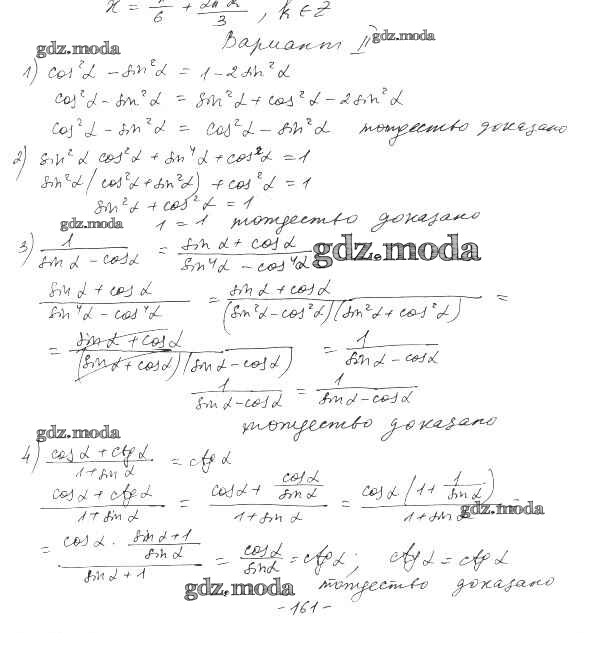 x = π/6 + 2πk/3, k ∈ Z
Вариант II
gdz.moda
gdz.moda
1) cos²α - sin²α = 1 - 2sin²α
cos²α - sin²α = sin²α + cos²α - 2sin²α
cos²α - sin²α = cos²α - sin²α тождество доказано
2) sin²α cos²α + sin⁴α + cos²α = 1
sin²α (cos²α + sin²α) + cos²α = 1
sin²α + cos²α = 1
gdz.moda 1 = 1 тождество доказано
3) 1/(sin α - cos α) = (sin α + cos α)/(sin⁴α - cos⁴α) gdz.moda
(sin α + cos α)/(sin⁴α - cos⁴α) = (sin α + cos α)/((sin²α - cos²α)(sin²α + cos²α)) =
= (sin α + cos α)/((sin α + cos α)(sin α - cos α)) = 1/(sin α - cos α)
1/(sin α - cos α) = 1/(sin α - cos α)
gdz.moda тождество доказано
4) (cos α + ctg α)/(1 + sin α) = ctg α
(cos α + ctg α)/(1 + sin α) = (cos α + cos α/sin α)/(1 + sin α) = cos α (1 + 1/sin α)/(1 + sin α)
gdz.moda
= (cos α · (sin α + 1)/sin α)/(sin α + 1) = cos α/sin α = ctg α; ctg α = ctg α
gdz.moda тождество доказано
- 161 -